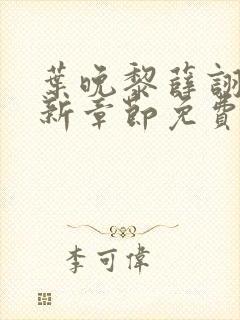 葉晚黎薛詡
新章節免費
李可偉